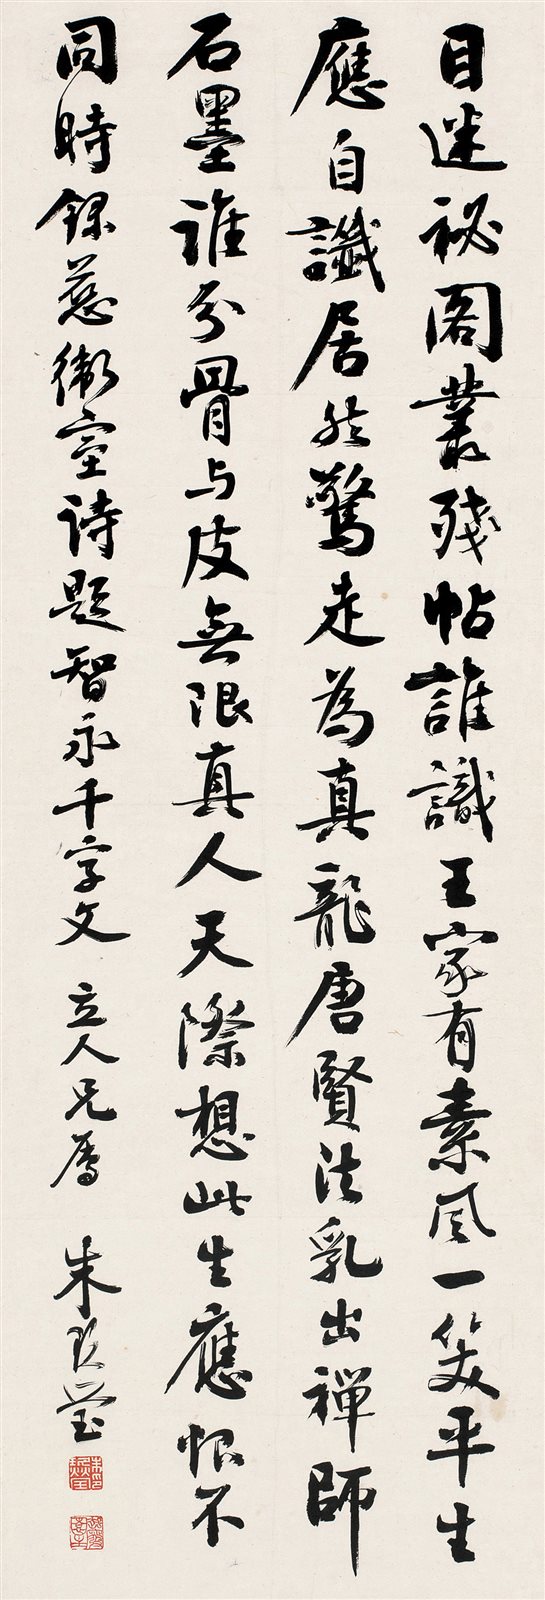 目迷祕閣叢殘帖誰識王家有素風一笑平生
應自讖居然驚走為真龍唐賢法乳出禅師
石墨誰分骨与皮無限真人天際想此生應恨不
同時錄慈衛室诗題智永千字文 立人兄属 朱玖瑩